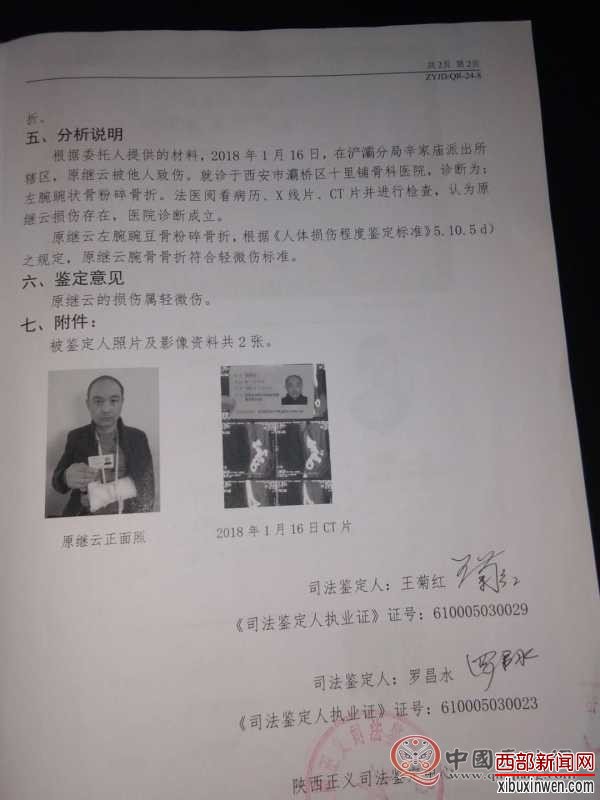 共2页 第2页
ZYJD/QR-24-8
折。
五、分析说明
根据委托人提供的材料，2018年1月16日，在浐灞分局辛家庙派出所
辖区，原继云被他人致伤。就诊于西安市灞桥区十里铺骨科医院，诊断为：
左腕豌状骨粉碎骨折。法医阅看病历、X线片、CT片并进行检查，认为原
继云损伤存在，医院诊断成立。
原继云左腕豌豆骨粉碎骨折，根据《人体损伤程度鉴定标准》5.10.5 d）
之规定，原继云腕骨骨折符合轻微伤标准。
六、鉴定意见
原继云的损伤属轻微伤。
七、附件：
被鉴定人照片及影像资料共2张。
原继云正面照
2018年1月16日CT片
司法鉴定人：王菊红
《司法鉴定人执业证》证号：610005030029
司法鉴定人：罗昌水 罗昌水
《司法鉴定人执业证》证号：610005030023
陕西正义司法鉴定中心
正义司法鉴
中国
西部新闻网
xibuxinwen.com